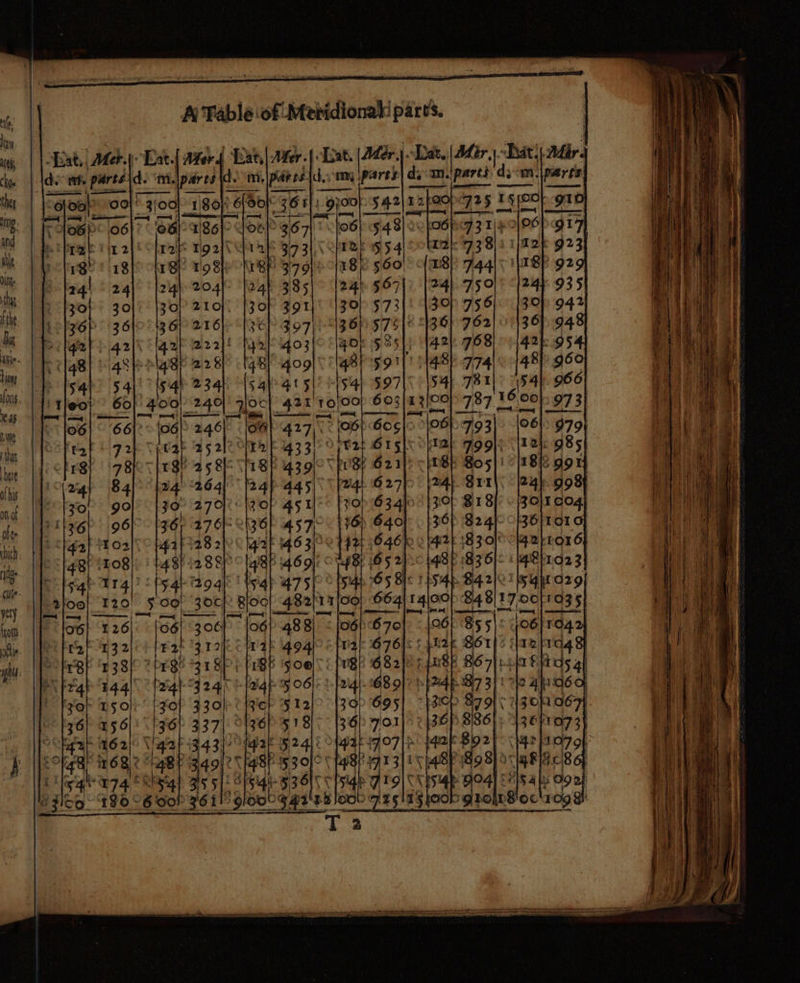 A Table of Meridionall parts.
Lat. Mer. Lat. Mer. Lat. Mer. Lat. Mer. Lat. Mer. Lat. Mer.
d. m. parts d. m. parts d. m. parts d. m. parts d. m. parts d. m. parts
0 00 00 3 00 180 6 00 361 9 00 542 12 00 725 15 00 910
06 06 06 186 06 367 06 548 06 731 06 917
12 12 12 192 12 373 12 554 12 738 12 923
18 18 18 198 18 379 18 560 18 744 18 929
24 24 24 204 24 385 24 567 24 750 24 935
30 30 30 210 30 391 30 573 30 756 30 942
36 36 36 216 36 397 36 579 36 762 36 948
42 42 42 222 42 403 42 585 42 768 42 954
48 48 48 228 48 409 48 591 48 774 48 960
54 54 54 234 54 415 54 597 54 781 54 966
1 00 60 4 00 240 7 00 421 10 00 603 13 00 787 16 00 973
06 66 06 246 06 427 06 609 06 793 06 979
12 72 12 252 12 433 12 615 12 799 12 985
18 78 18 258 18 439 18 621 18 805 18 991
24 84 24 264 24 445 24 627 24 811 24 998
30 90 30 270 30 451 30 634 30 818 30 1004
36 96 36 276 36 457 36 640 36 824 36 1010
42 102 42 282 42 463 42 646 42 830 42 1016
48 108 48 288 48 469 48 652 48 836 48 1023
54 114 54 294 54 475 54 658 54 842 54 1029
2 00 120 5 00 300 8 00 482 11 00 664 14 00 848 17 00 1035
06 126 06 306 06 488 06 670 06 855 06 1042
12 132 12 312 12 494 12 676 12 861 12 1048
18 138 18 318 18 500 18 682 18 867 18 1054
24 144 24 324 24 506 24 689 24 873 24 1060
30 150 30 330 30 512 30 695 30 879 30 1067
36 156 36 337 36 518 36 701 36 886 36 1073
42 162 42 343 42 524 42 707 42 892 42 1079
48 168 48 349 48 530 48 713 48 898 48 1086
54 174 54 355 54 536 54 719 54 904 54 1092
3 00 180 6 00 361 9 00 542 12 00 725 15 00 910 18 00 1098
T 2